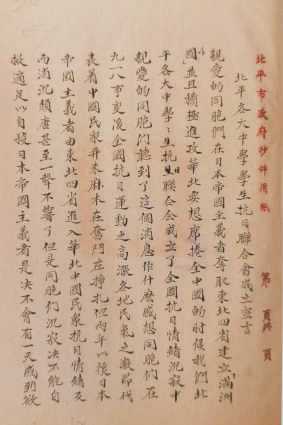 北平市政府抄件用紙 第 頁共 頁
北平各大中學學生抗日聯合會成立宣言
親愛的同胞們在日本帝國主義者奪取東北四省建立滿洲
國並且積極進攻華北妄想席捲全中國的時候我們北
平各大中學學生抗日聯合會成立了全國抗日情緒沉寂中
親愛的同胞們聽到了這個消息作什麽感想同胞們在
九一八事變後全國抗日運動之高漲各地民氣之激昂代
表着中國民衆并未麻木在奮鬥在掙扎但兩年以後日本
帝國主義者由東北四省進入華北中國民衆抗日情緒反
而消沉頹唐甚至一聲不響了但是同胞們沉寂决不能自
救適足以自殺日本帝國主義者是决不會有一天感到欲